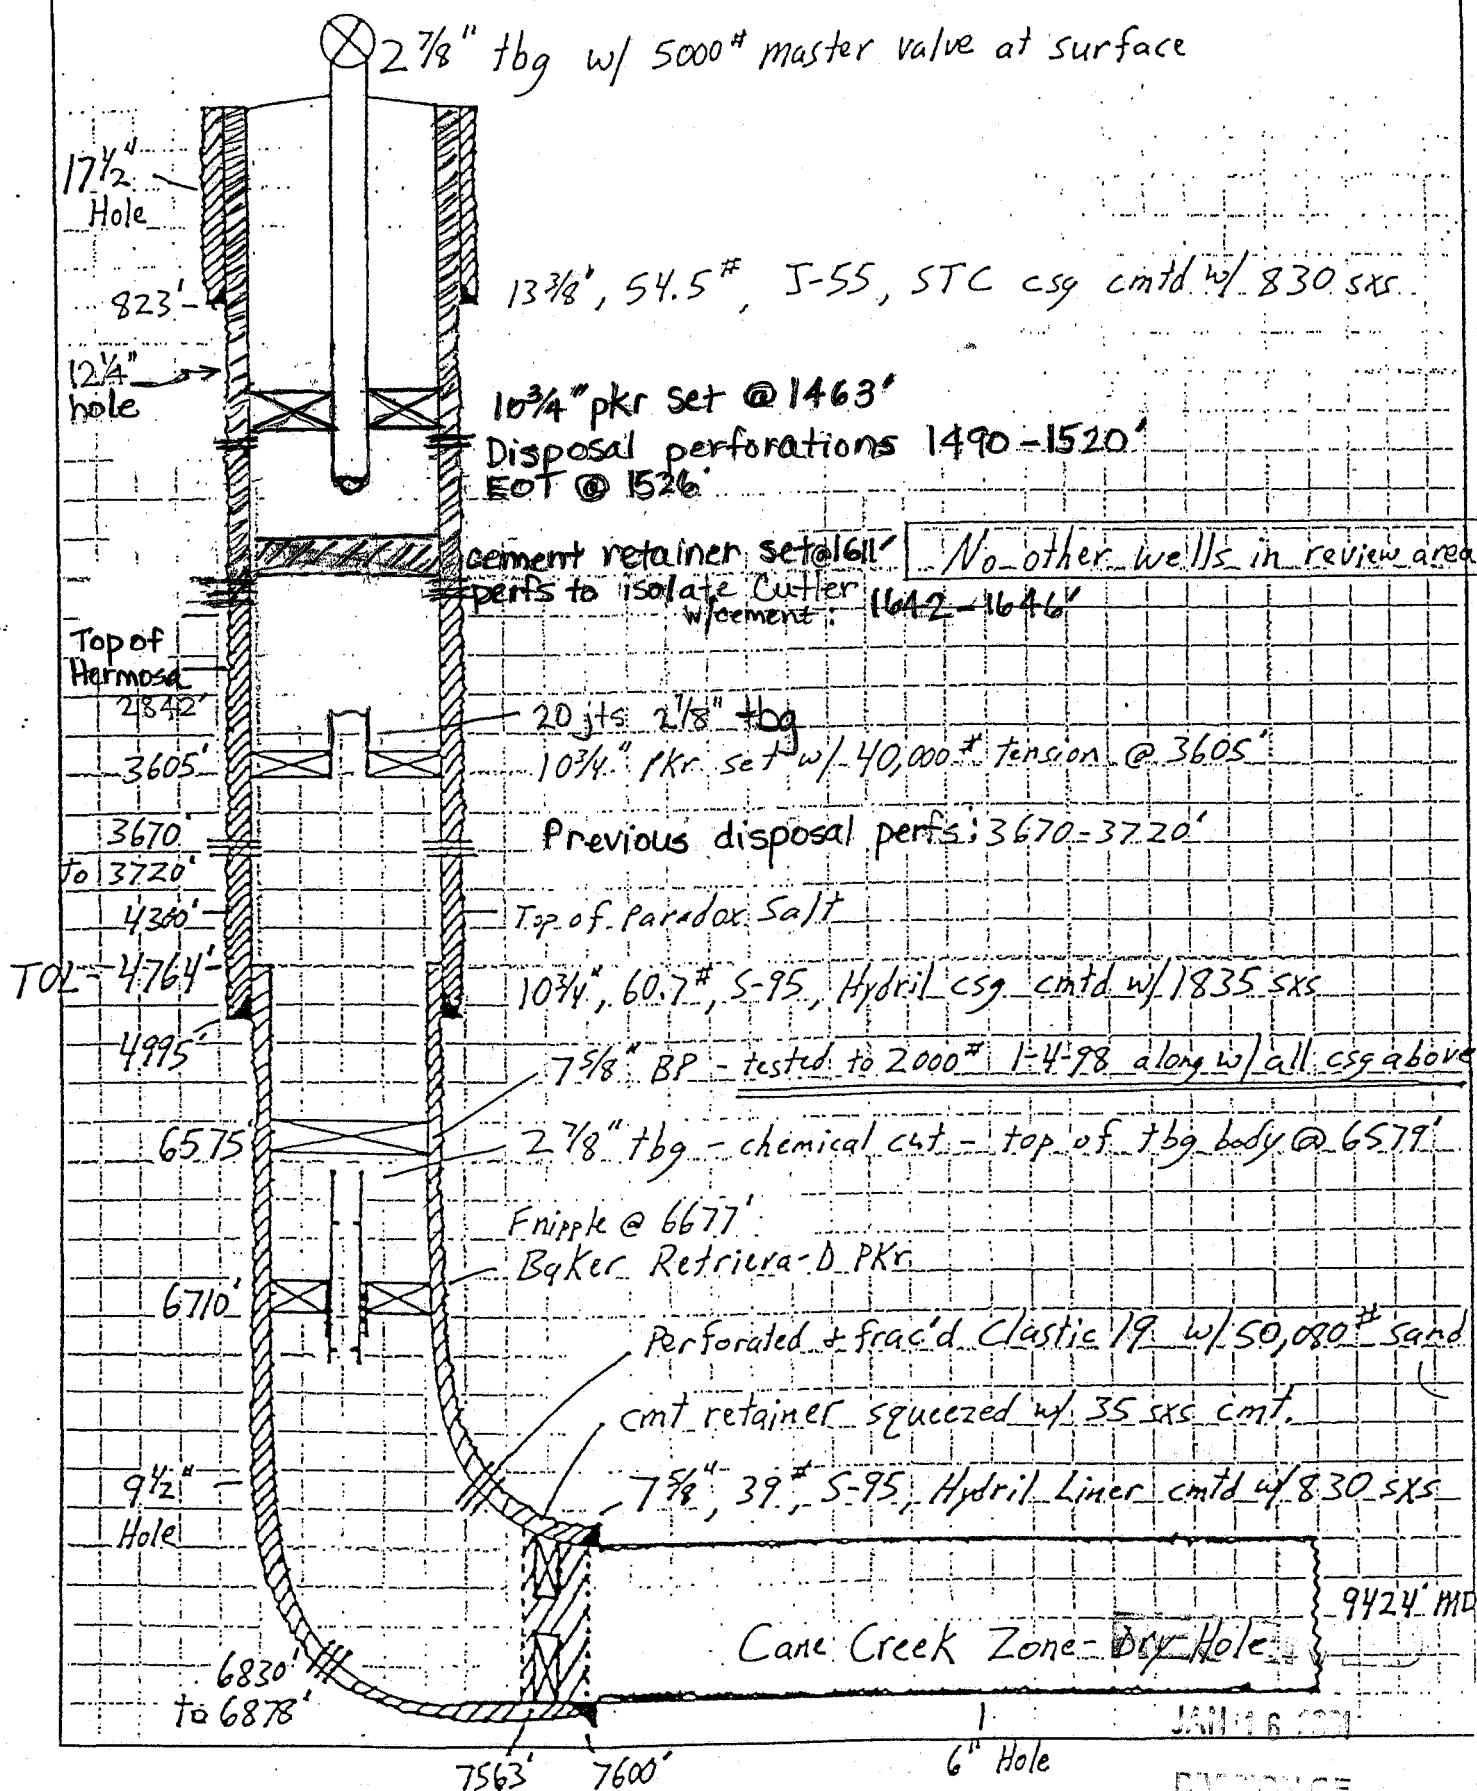 2 7/8" tbg w/ 5000# master valve at surface
17 1/2"
Hole
823'
13 3/8", 54.5#, J-55, STC csg cmtd w/ 830 sxs
12 1/4"
hole
10 3/4" pkr set @ 1463'
Disposal perforations 1490-1520'
EOT @ 1526'
cement retainer set@1611'
No other wells in review area
perfs to isolate Cutler
w/cement: 1642-1646'
Top of
Hermosa
2842'
20 jts 2 7/8" tbg
3605'
10 3/4" Pkr set w/ 40,000# tension @ 3605'
3670'
to 3720'
Previous disposal perfs: 3670-3720'
4360'
Top of Paradox Salt
TOL - 4764'
10 3/4", 60.7#, S-95, Hydril csg cmtd w/ 1835 sxs
4995'
7 5/8" BP - tested to 2000# 1-4-98 along w/ all csg above
6575'
2 7/8" tbg - chemical cut - top of tbg body @ 6579'
F nipple @ 6677'
Baker Retrieva-D PKr
6710'
Perforated & frac'd Clastic 19 w/ 50,080# sand
cmt retainer squeezed w/ 35 sxs cmt.
9 1/2"
Hole
7 5/8", 39#, S-95, Hydril Liner cmtd w/ 830 sxs
9424' MD
Cane Creek Zone - Dry Hole
6830'
to 6878'
7563'
7600'
6" Hole